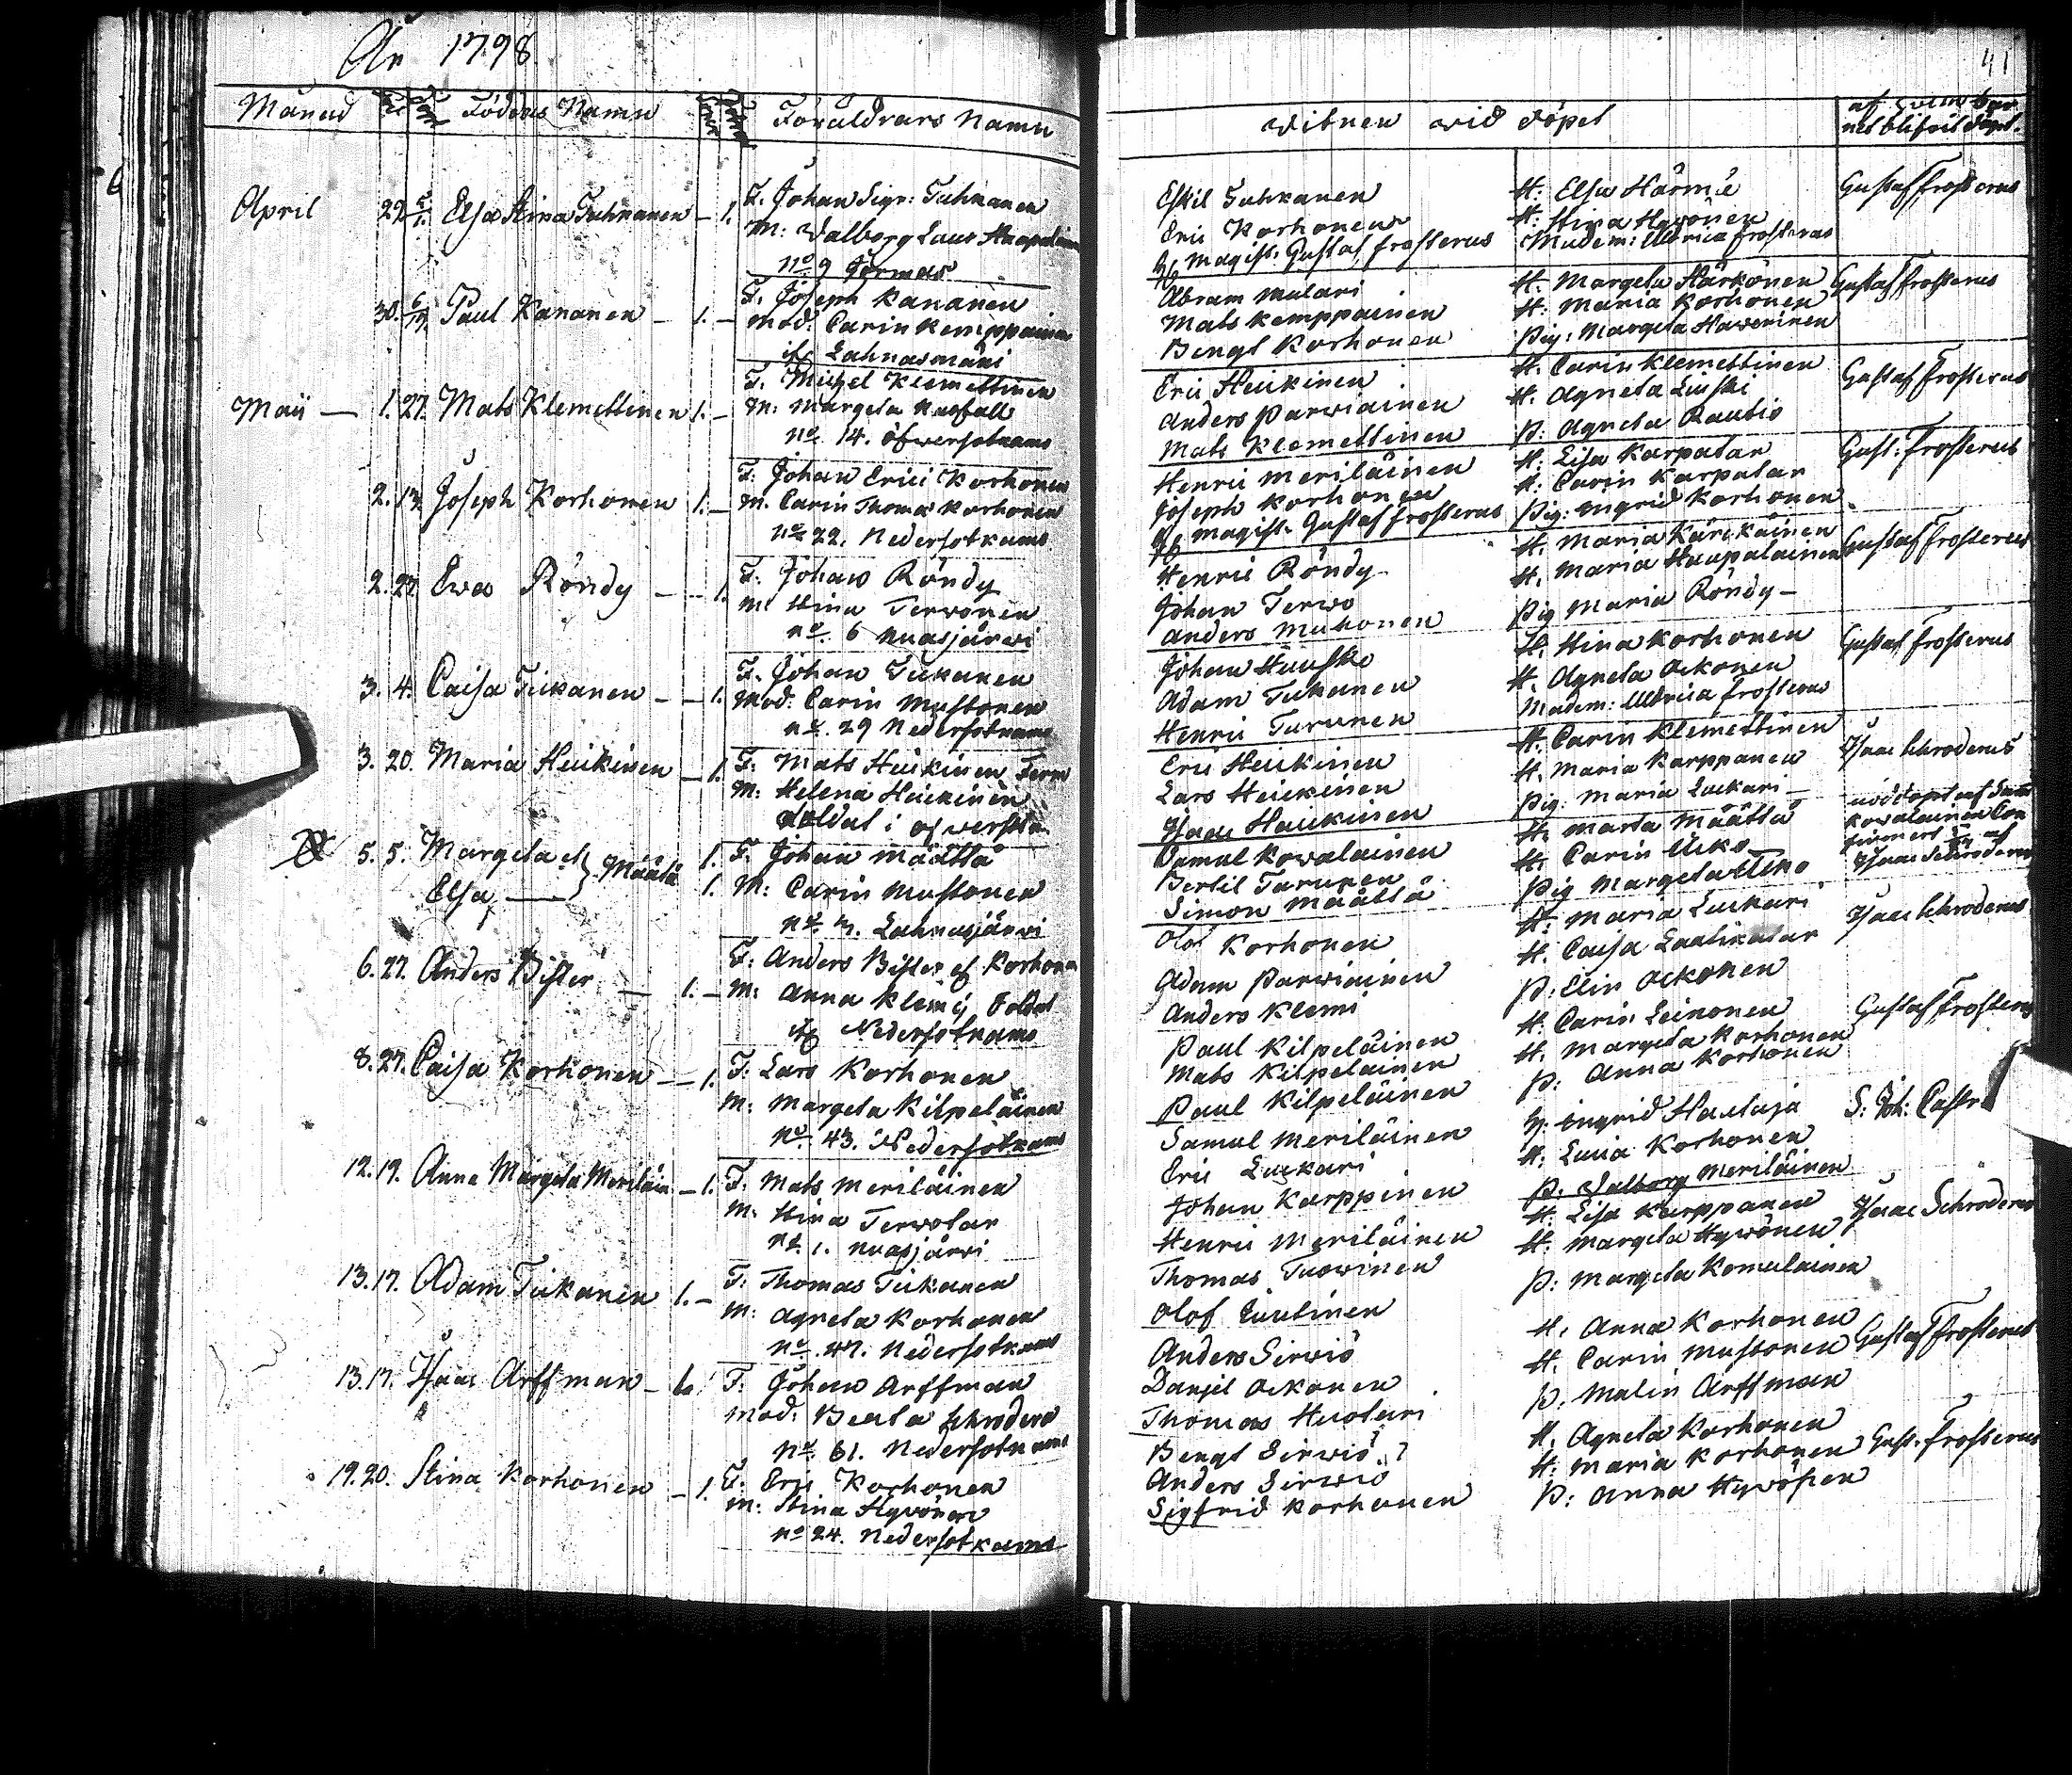 År 1798.
41
Månad Född Döpt Föddas Namn Föräldrars Namn
Witnen wid döpet
af hvem bar
net blifvit döpt.
April 29. 5/1. Elsa Stina Tuhkanen – 1.
F. Johan Sigr: Tuhkanen
M: Walborg Laur
no 9 Jormas
30. 6/ Paul Kananen – 1. –
F. Joseph Kananen
Mod: Carin Kemppainen
Lahnasmäki
Maii – 1. 27. Mats Klemettinen 1. –
F. Michel Klemettinen
M: Margeta
no 14. Öfwersotkamo
2. 13. Joseph Korhonen 1. –
F: Johan Erici Korhonen
M. Carin Thomæ Korhonen
no 22. Nedersotkamo
2. 27. Ewa Röndy – – 1.
F: Johan Röndy
M: Stina Terwonen
no. 6 Nuasjärwi
3. 4. Caisa Tiikanen – – 1.
F. Johan Tiikanen
Mod: Carin Mustonen
no. 29 Nedersotkamo
3. 20. Maria Heikinen – 1.
F: Mats Heikinen
M: Helena Heickinen
Soldat i Öfwersotk
5. 5. Margeta et } Määttä 1.
Elsa – 1.
F: Johan Määttä
M: Carin Mustonen
no Lahnasjärwi
6. 27. Anders Bister – 1. –
F: Anders Bister et Korhonen
M: Anna Klemi
Nedersotkamo
8. 27. Caisa Korhonen – – 1.
F: Lars Korhonen
M: Margeta Kilpeläinen
no 43. Nedersotkamo
12. 19. Anna Margeta Meriläin – 1.
F: Mats Meriläinen
M: Stina Terwotar
no 1. Nuasjärwi
13. 17. Adam Tiikanen 1. –
F: Thomas Tiikanen
M: Agneta Korhonen
no. 47. Nedersotkamo
13. 17. Isaac Arffman – 1.
F: Johan Arffman
Mod: Beata Schroderus
no. 61. Nedersotkamo
19. 20. Stina Korhonen – 1.
F: Eric Korhonen
M: Stina Hyvönen
no 24. Nedersotkamo
Eskil Tuhkanen
Eric Korhonen
Magist: Gustaf Frosterus
H: Elsa Härmä
H: Stina Hyvönen
Madem: Ulbrica Frosterus
Gustaf Frosterus
Abram Mulari
Mats Kemppainen
Bengt Korhonen
H: Margeta Härkönen
H: Maria Korhonen
Pig: Margeta Haverinen
Gustaf Frosterus
Eric Heikinen
Anders Parwiainen
Mats Klemettinen
H: Carin Klemettinen
H: Agneta Luski
P: Agneta Rautio
Gustaf Frosterus
Henric Meriläinen
Joseph Korhonen
Magist: Gustaf Frosterus
H: Lisa Karpatar
H: Carin Karpatar
Pig: Ingrid Korhonen
Gust: Frosterus
Henric Röndy
Johan Terwo
Anders Mustonen
H. Maria Kärckäinen
H. Maria Haapalainen
Pig Maria Röndy –
Gustaf Frosterus
Johan Hausko
Adam Tiikanen
Henric Turunen
H: Stina Korhonen
H. Agneta Ockonen
Madem: Ulbrica Frosterus
Gustaf Frosterus
Eric Heikinen
Lars Heickinen
Isaac Haukinen
H: Carin Klemettinen
H. Maria Karppanen
Pig: Maria Luckari –
Isaac Schroderus
Samuel Kowalainen
Bertil Turunen
Simon Määttä
H. Marta Määttä
H: Carin Ucko
Pig Margeta Ucko
nöddöpt af Sam
Kowalainen Con
firmerd af
Isaac Schroderus
Olof Korhonen
Adam Parwiainen
Anders Klemi
H: Maria Luckari
H. Caisa Laatikatar
P: Elin Ockonen
Isaac Schroderus
Paul Kilpeläinen
Mats Kilpeläinen
Paul Kilpeläinen
H. Carin Leinonen
H. Margeta Korhonen
P: Anna Korhonen
Gustaf Frosterus
Samuel Meriläinen
Eric Luckari
Johan Karppinen
H. Ingrid Hautaja
H. Lucia Korhonen
P: Walborg Meriläinen
S: Joh: Castr
Henric Meriläinen
Thomas Tuowinen
Olof Luutinen
H. Lisa Karppanen
H. Margeta Hyvönen
P: Margeta Komulainen
Isaac Schroderus
Anders Sirwiö
Daniel Ockonen
Thomas Huotari
H. Anna Korhonen
H. Carin Mustonen
P. Malin Arffman
Gustaf Frosterus
Bengt Sirwiö
Anders Sirwiö
Sigfrid Korhonen
H. Agneta Korhonen
H: Maria Korhonen
P: Anna Hyvönen
Gust. Frosterus